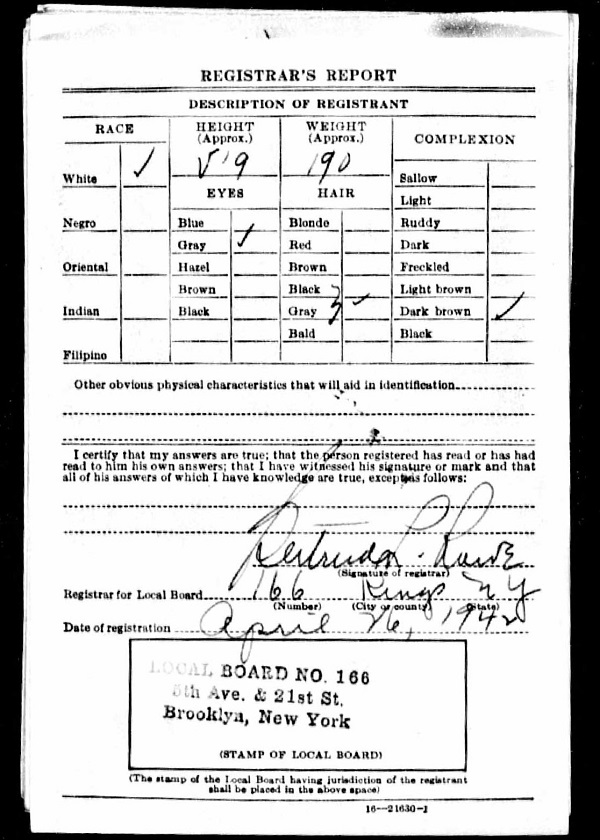 REGISTRAR'S REPORT
DESCRIPTION OF REGISTRANT
RACE
HEIGHT (Approx.)
WEIGHT (Approx.)
COMPLEXION
5'9
190
White ✓
EYES
HAIR
Sallow
Light
Negro
Blue
Blonde
Ruddy
Gray ✓
Red
Dark
Oriental
Hazel
Brown
Freckled
Brown
Black
Light brown
Indian
Black
Gray ✓
Dark brown ✓
Bald
Black
Filipino
Other obvious physical characteristics that will aid in identification
I certify that my answers are true; that the person registered has read or has had
read to him his own answers; that I have witnessed his signature or mark and that
all of his answers of which I have knowledge are true, except as follows:
(Signature of registrar)
Registrar for Local Board 166 Kings N Y
(Number) (City or county) (State)
Date of registration April 26, 1942
LOCAL BOARD NO. 166
5th Ave. & 21st St.
Brooklyn, New York
(STAMP OF LOCAL BOARD)
(The stamp of the Local Board having jurisdiction of the registrant
shall be placed in the above space)
16—21630-1